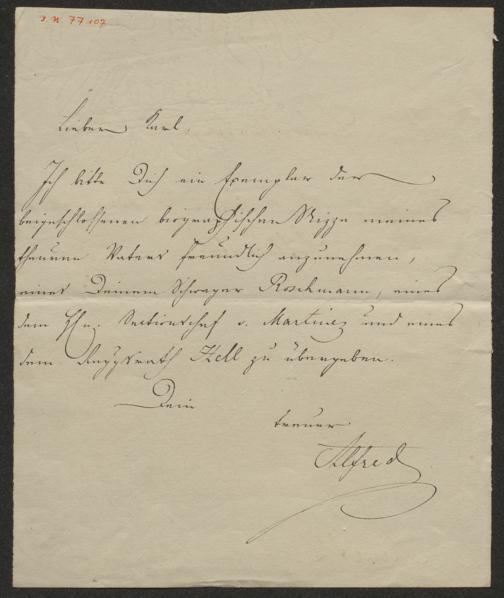 I. N. 77.107
Lieber Karl,
Ich bitte Dich ein Exemplar der
beigeschlossenen biographischen Skizze meines
theuren Vaters freundlich anzunehmen,
eines Deinem Schwager Roschmann, eines
dem Hn. Sectionschef v. Martinez und eines
dem Regsrath Kell zu übergeben.
Dein
treuer
Alfred